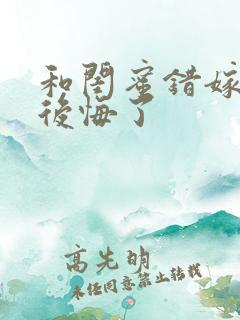 和閨蜜錯嫁
後悔了
高先明
未经同意禁止转载